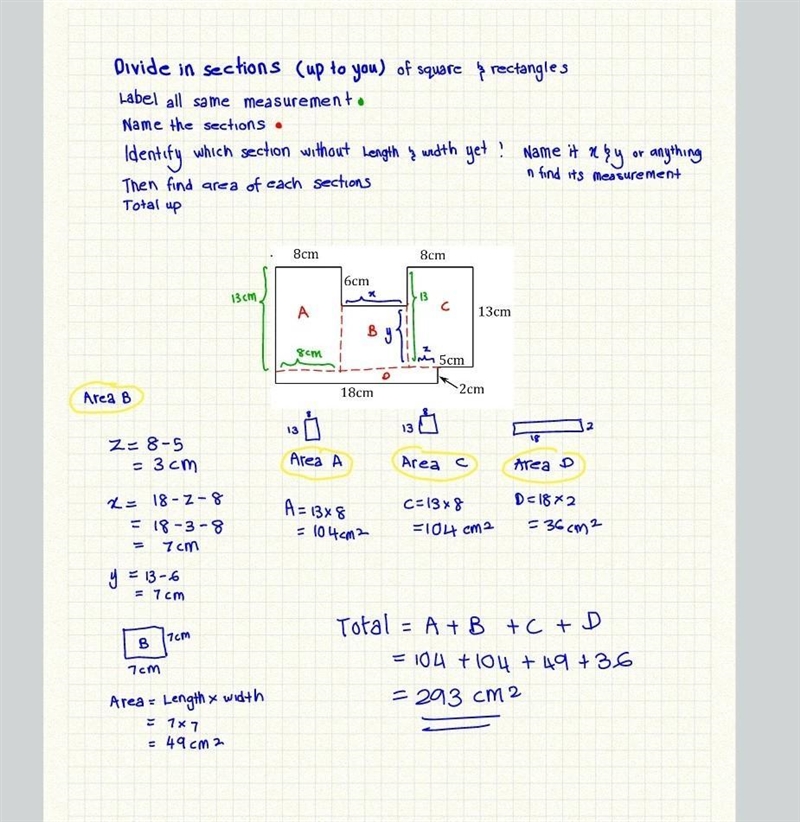 Divide in sections (up to you) of square & rectangles
Label all same measurement
Name the sections
Identify which section without Length & width yet! Name it x & y or anything
n find its measurement
Then find area of each sections
Total up
8cm 8cm
6cm
x
13cm
13
A
C
13cm
B y
8cm
z
5cm
D
18cm
2cm
Area B
z = 8-5
= 3cm
x = 18-z-8
= 18-3-8
= 7cm
y = 13-6
= 7cm
B 7cm
7cm
Area = Length x width
= 7x7
= 49cm2
8
13
Area A
A = 13x8
= 104cm2
8
13
Area C
C = 13x8
= 104 cm2
2
18
Area D
D = 18x2
= 36cm2
Total = A + B + C + D
= 104 + 104 + 49 + 36
= 293 cm2